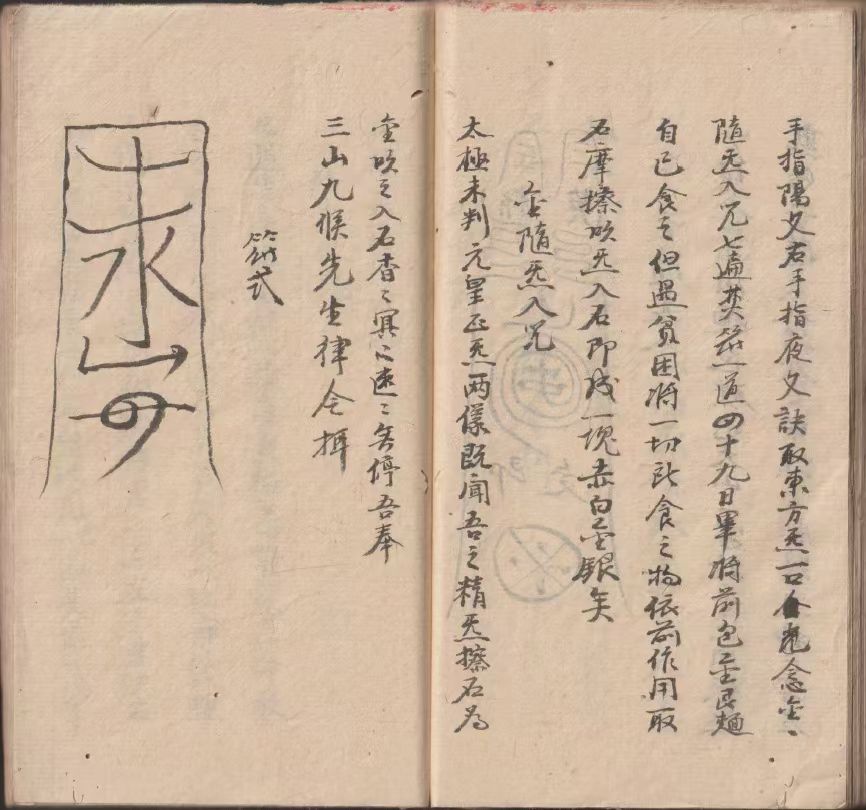 手指陽文右手指夜文訣取東方炁一口念金、
隨炁入咒七遍焚符一道四十九日畢將前包金艮麺
自已食之但遇貧困將一切所食之物依前作用取
石摩擦吹炁入石即成一塊赤白金銀矣
金隨炁入咒
太極未判元皇正炁兩儀既闻吾之精炁擦石為
金吹之入石杳〻冥〻速〻奔停吾奉
三山九侯先生律令攝
符式